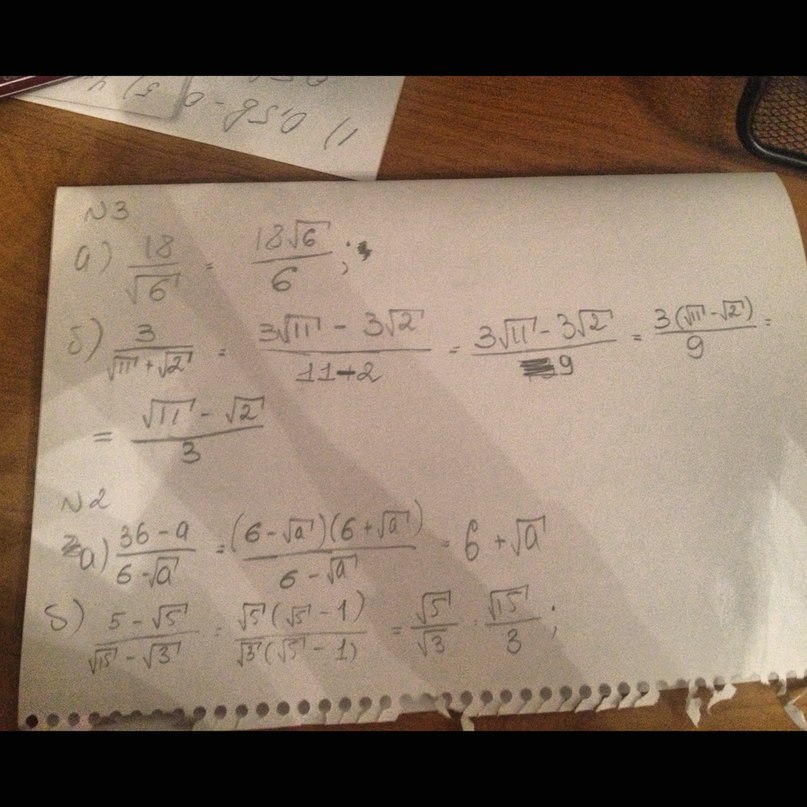 1) 0,5b - 0
5)
N3
а) 18/√6 = 18√6/6;
б) 3/(√11+√2) = (3√11 - 3√2)/(11-2) = (3√11 - 3√2)/9 = 3(√11-√2)/9 =
= (√11 - √2)/3
N2
а) (36-a)/(6-√a) = (6-√a)(6+√a)/(6-√a) = 6+√a
б) (5-√5)/(√15-√3) = √5(√5-1)/√3(√5-1) = √5/√3 = √15/3;